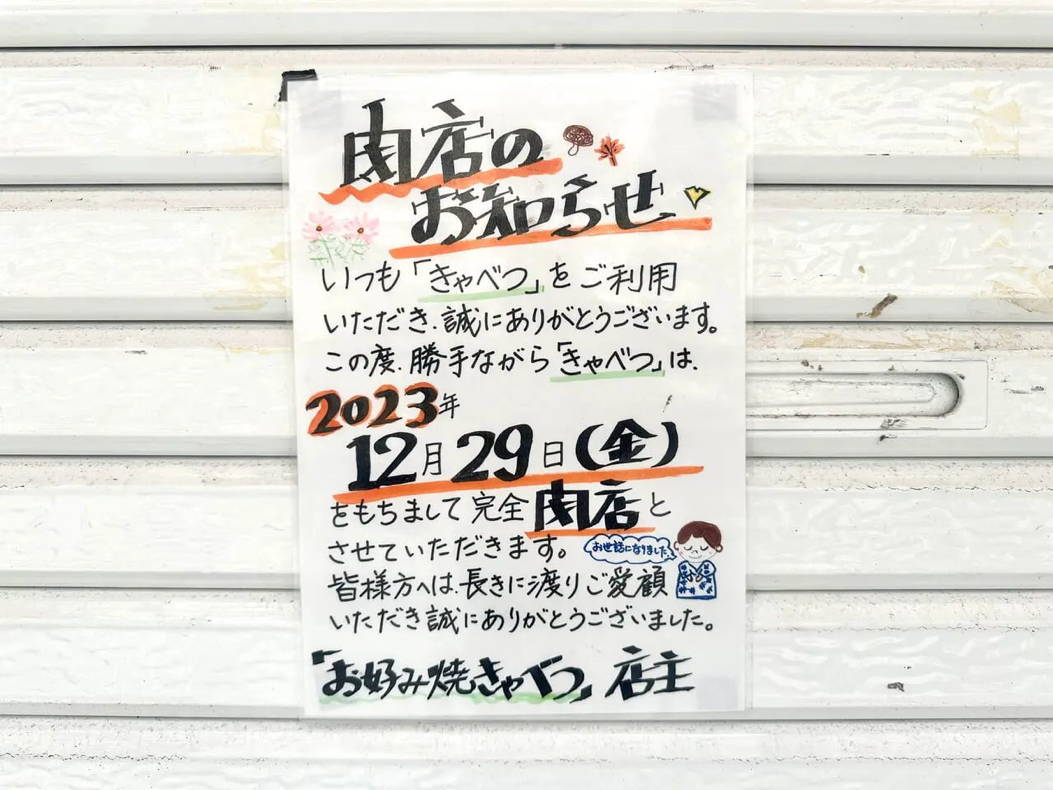 閉店の
お知らせ
いつも「きゃべつ」をご利用
いただき、誠にありがとうございます。
この度、勝手ながら「きゃべつ」は、
2023年
12月29日(金)
をもちまして完全閉店と
させていただきます。
お世話になりました
皆様方へは、長きに渡りご愛顧
いただき誠にありがとうございました。
「お好み焼きゃべつ」店主